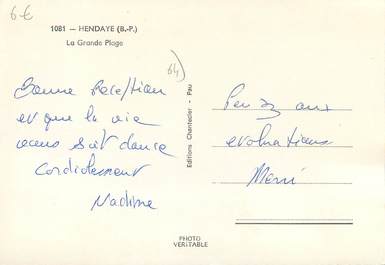 6€
1081 — HENDAYE (B.-P.)
La Grande Plage
64)
Bonne
et que la vie
vous soit douce
Cordialement
Nadine
Editions Chantecler - Pau
Pensez aux
évolutions
Merci
PHOTO
VERITABLE